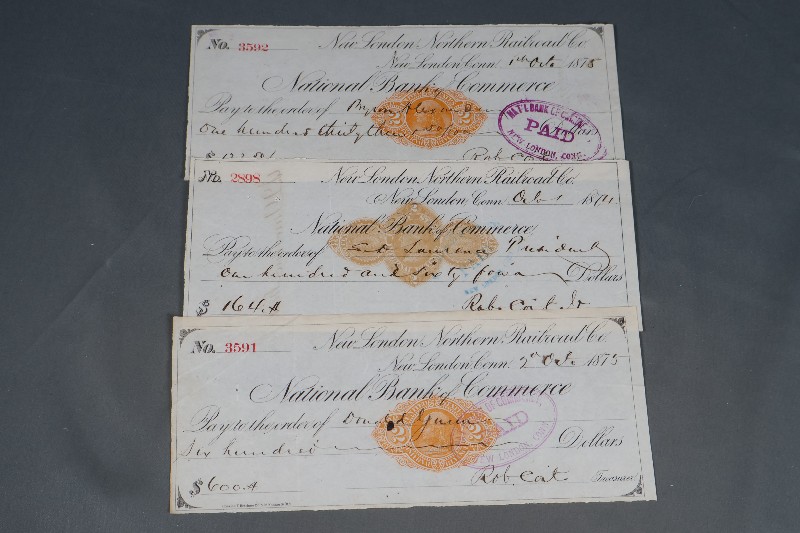 No. 3592 New London Northern Railroad Co.
New London Conn. 1st Oct. 1875
National Bank of Commerce
Pay to the order of Byron
One hundred thirty three 50/100 Dollars
NAT'L BANK OF COM
PAID
NEW LONDON, CONN.
$ 133.50 Rob. Coit
No. 2898 New London Northern Railroad Co.
New London Conn. Oct 1 1874
National Bank of Commerce
Pay to the order of Lawrence President
One hundred and Sixty four Dollars
$ 164. Rob. Coit Tr
No. 3591 New London Northern Railroad Co.
New London Conn. 2d Oct. 1875
National Bank of Commerce
Pay to the order of Donald
Six hundred Dollars
PAID
NEW LONDON, CONN.
$ 600. Rob. Coit Treasurer